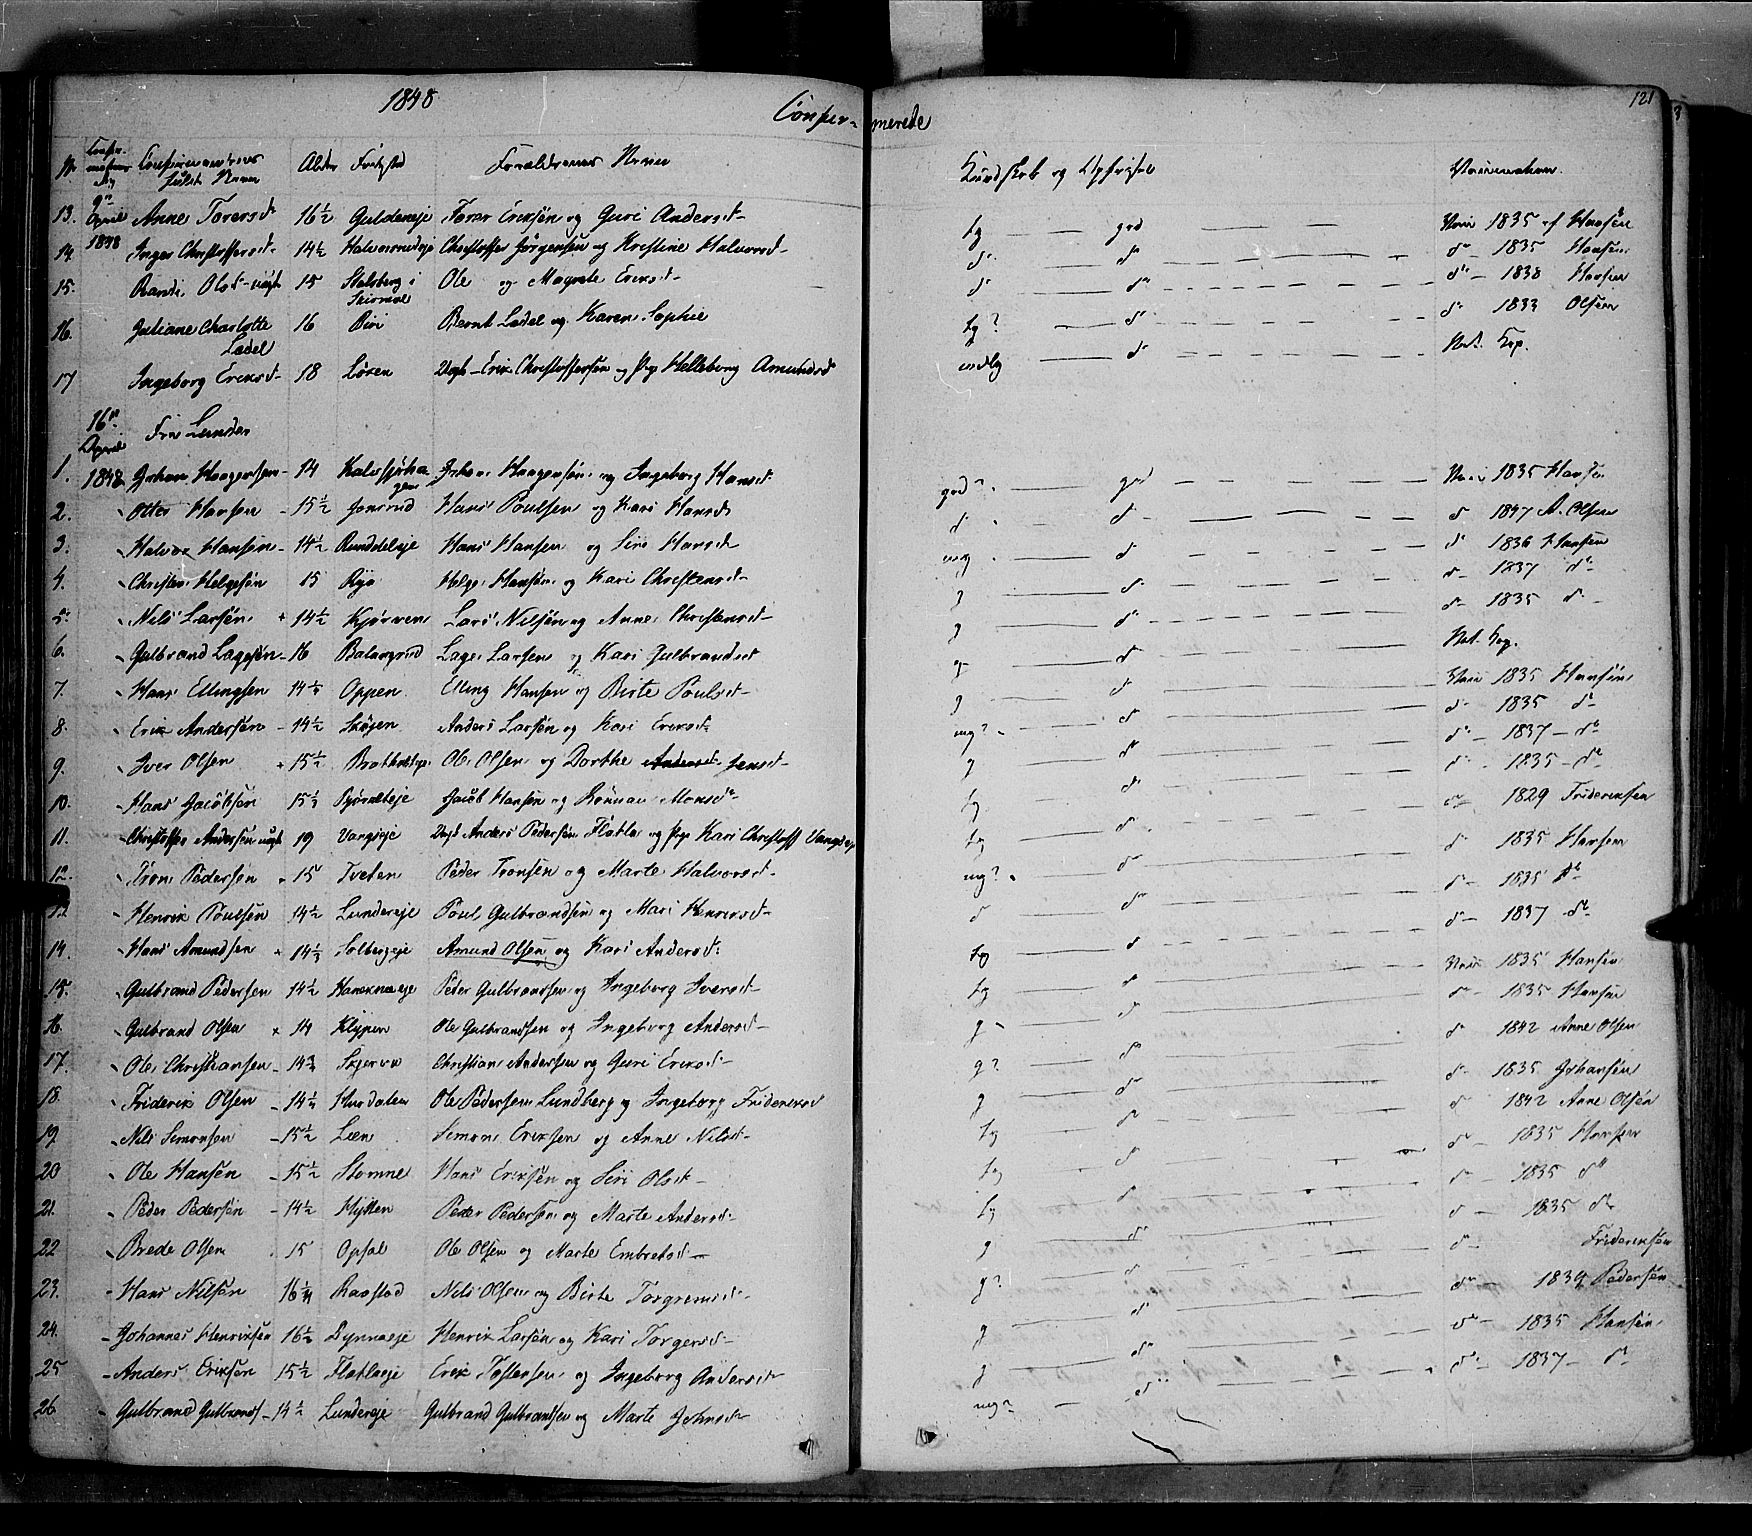 1848
Confir-
merede
121
No Confirmations Dag Confirmandens fulde Navn Alder Fødested Forældrenes Navne Kundskab og Opførsel Vaccination.
9de April 1848
13. Anne Torersdt 16½ Guldeneje Torer Eriksen og Guri Andersdt tg god Vacc 1835 af Hansen
14. Inger Christoffersdt 14½ Halvorsrudeje Christoffer Jørgensen og Kristine Halvorsdt do do do 1835 Hansen
15. Randi Olsdt uægte 15 Ole og Magrete Eriksdt do do do 1838 Hansen
16. Juliane Charlotte Ladel 16 Biri Bernt Ladel og Karen Sophie tg? do do 1833 Olsen
17 Ingeborg Eriksdt 18 Løken Erik Christoffersen og Pige Helleborg Amundsd do Nat. Kop.
16de April 1848 Fra Lunder
1. Johan Haagensen 14 Johan Haagensen og Ingeborg Hansdt god? god Vacc 1835 Hansen
2. Otter Hansen 15½ Jonsrud Hans Poulsen og Kari Hansdt do do do 1847 A. Olsen
3. Halvor Hansen 14½ Runddeleje Hans Hansen og Siri Hansdt mg do do 1836 Hansen
4. Christen Helgesen 15 Rya Helge Hansen og Kari Christensdt g do do 1837 do
5. Nils Larsen 14½ Kjørven Lars Nilsen og Anne Christensdt g do do 1835 do
6. Gulbrand Lagesen 16 Balangrud Lage Larsen og Kari Gulbrandsdt g do Nat. Kop.
7. Hans Ellingsen 14½ Oppen Elling Hansen og Birte Poulsdt g do Vacc 1835 Hansen
8. Erik Andersen 14½ Skøyen Anders Larsen og Kari Eriksdt mg? do do 1835 do
9. Iver Olsen 15½ Ole Olsen og Dorthe Jensdt g do do 1837 do
10. Hans Jacobsen 15½ Bjørneleje Jacob Hansen og Rønnau Monsdt tg do do 1835 do
11. Christoffer Andersen uægt 19 Vangseje Anders Pedersen Flatla og Pige Kari Christoff Vangseje tg do do 1829 Frideriksen
12. Tron Pedersen 15 Tveten Peder Tronsen og Marte Halvorsdt mg? do do 1835 Hansen
13. Henrik Poulsen 14½ Lundereje Poul Gulbrandsen og Mari Henriksdt do do do 1835 do
14. Hans Amundsen 14½ Solbergeje Amund Olsen og Kari Andersdt tg do do 1837 do
15. Gulbrand Pedersen 14½ Peder Gulbrandsen og Ingeborg Iversdt tg do Vacc 1835 Hansen
16. Gulbrand Olsen 14 Klypen Ole Gulbrandsen og Ingeborg Andersdt g do do 1835 Hansen
17. Ole Christiansen 14¾ Skjerva Christian Andersen og Guri Eriksdt g? do do 1842 Anne Olsen
18. Friderik Olsen 14½ Hurdalen Ole Pedersen Lundberg og Ingeborg Frideriksd g do do 1835 Johansen
19. Nils Simonsen 15½ Leen Simon Eriksen og Anne Nilsdt tg do do 1842 Anne Olsen
20 Ole Hansen 15½ Stomne Hans Eriksen og Siri Olsdt tg do do 1835 Hansen
21. Peder Pedersen 14½ Hytten Peder Pedersen og Marte Andersdt tg do do 1835 do
22 Brede Olsen 15 Opsal Ole Olsen og Marte Embretsdt g do do 1835 do
23. Hans Nilsen 16¼ Raastad Nils Olsen og Birte Torgrimsdt g? do do Frideriksen
24. Johannes Henriksen 16½ Dynnaeje Henrik Larsen og Kari Torgersdt g do do 1839 Pedersen
25 Anders Eriksen 15½ Flatlaeje Erik Tostensen og Ingeborg Andersdt g do do 1835 Hansen
26 Gulbrand Gulbrands 14½ Lundereje Gulbrand Gulbrandsen og Marte Johnsdt mg? do do 1837 do